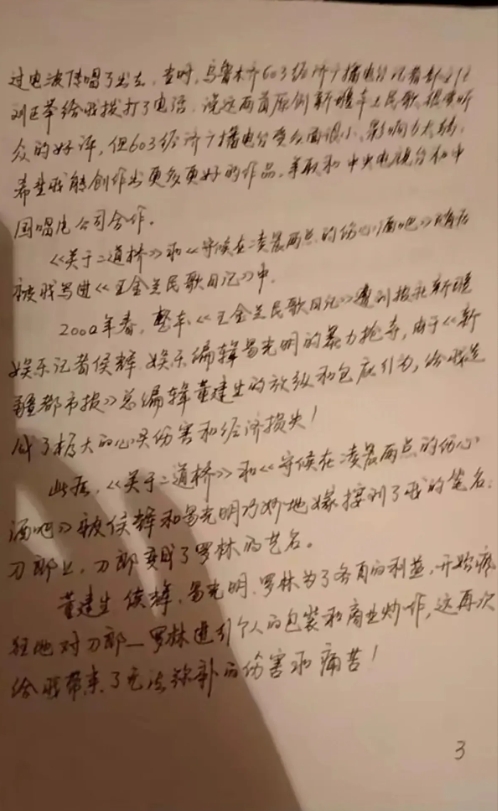 过电波传唱了出去。当时，乌鲁木齐603经济广播电台记者
刘正华给我拨打了电话，说这两首原创新疆本土民歌，很受听
众的好评，但603经济广播电台受众面很小，影响力太弱，
希望我能创作出更多更好的作品，争取和中央电视台和中
国唱片公司合作。
《关于二道桥》和《守候在凌晨两点的伤心酒吧》随后
被我写进《王金兰民歌日记》中。
2002年春，整本《王金兰民歌日记》遭到报社新疆
娱乐记者侯辉、娱乐编辑易光明的暴力抢夺，由于《新
疆都市报》总编辑董建生的放纵和包庇行为，给我造
成了极大的心灵伤害和经济损失！
此后，《关于二道桥》和《守候在凌晨两点的伤心
酒吧》被侯辉和易光明巧妙地嫁接到了我的笔名：
刀郎上，刀郎变成了罗林的艺名。
董建生、侯辉、易光明、罗林为了各自的利益，开始疯
狂地对刀郎—罗林进行个人的包装和商业炒作，这再次
给我带来了无法弥补的伤害和痛苦！
3